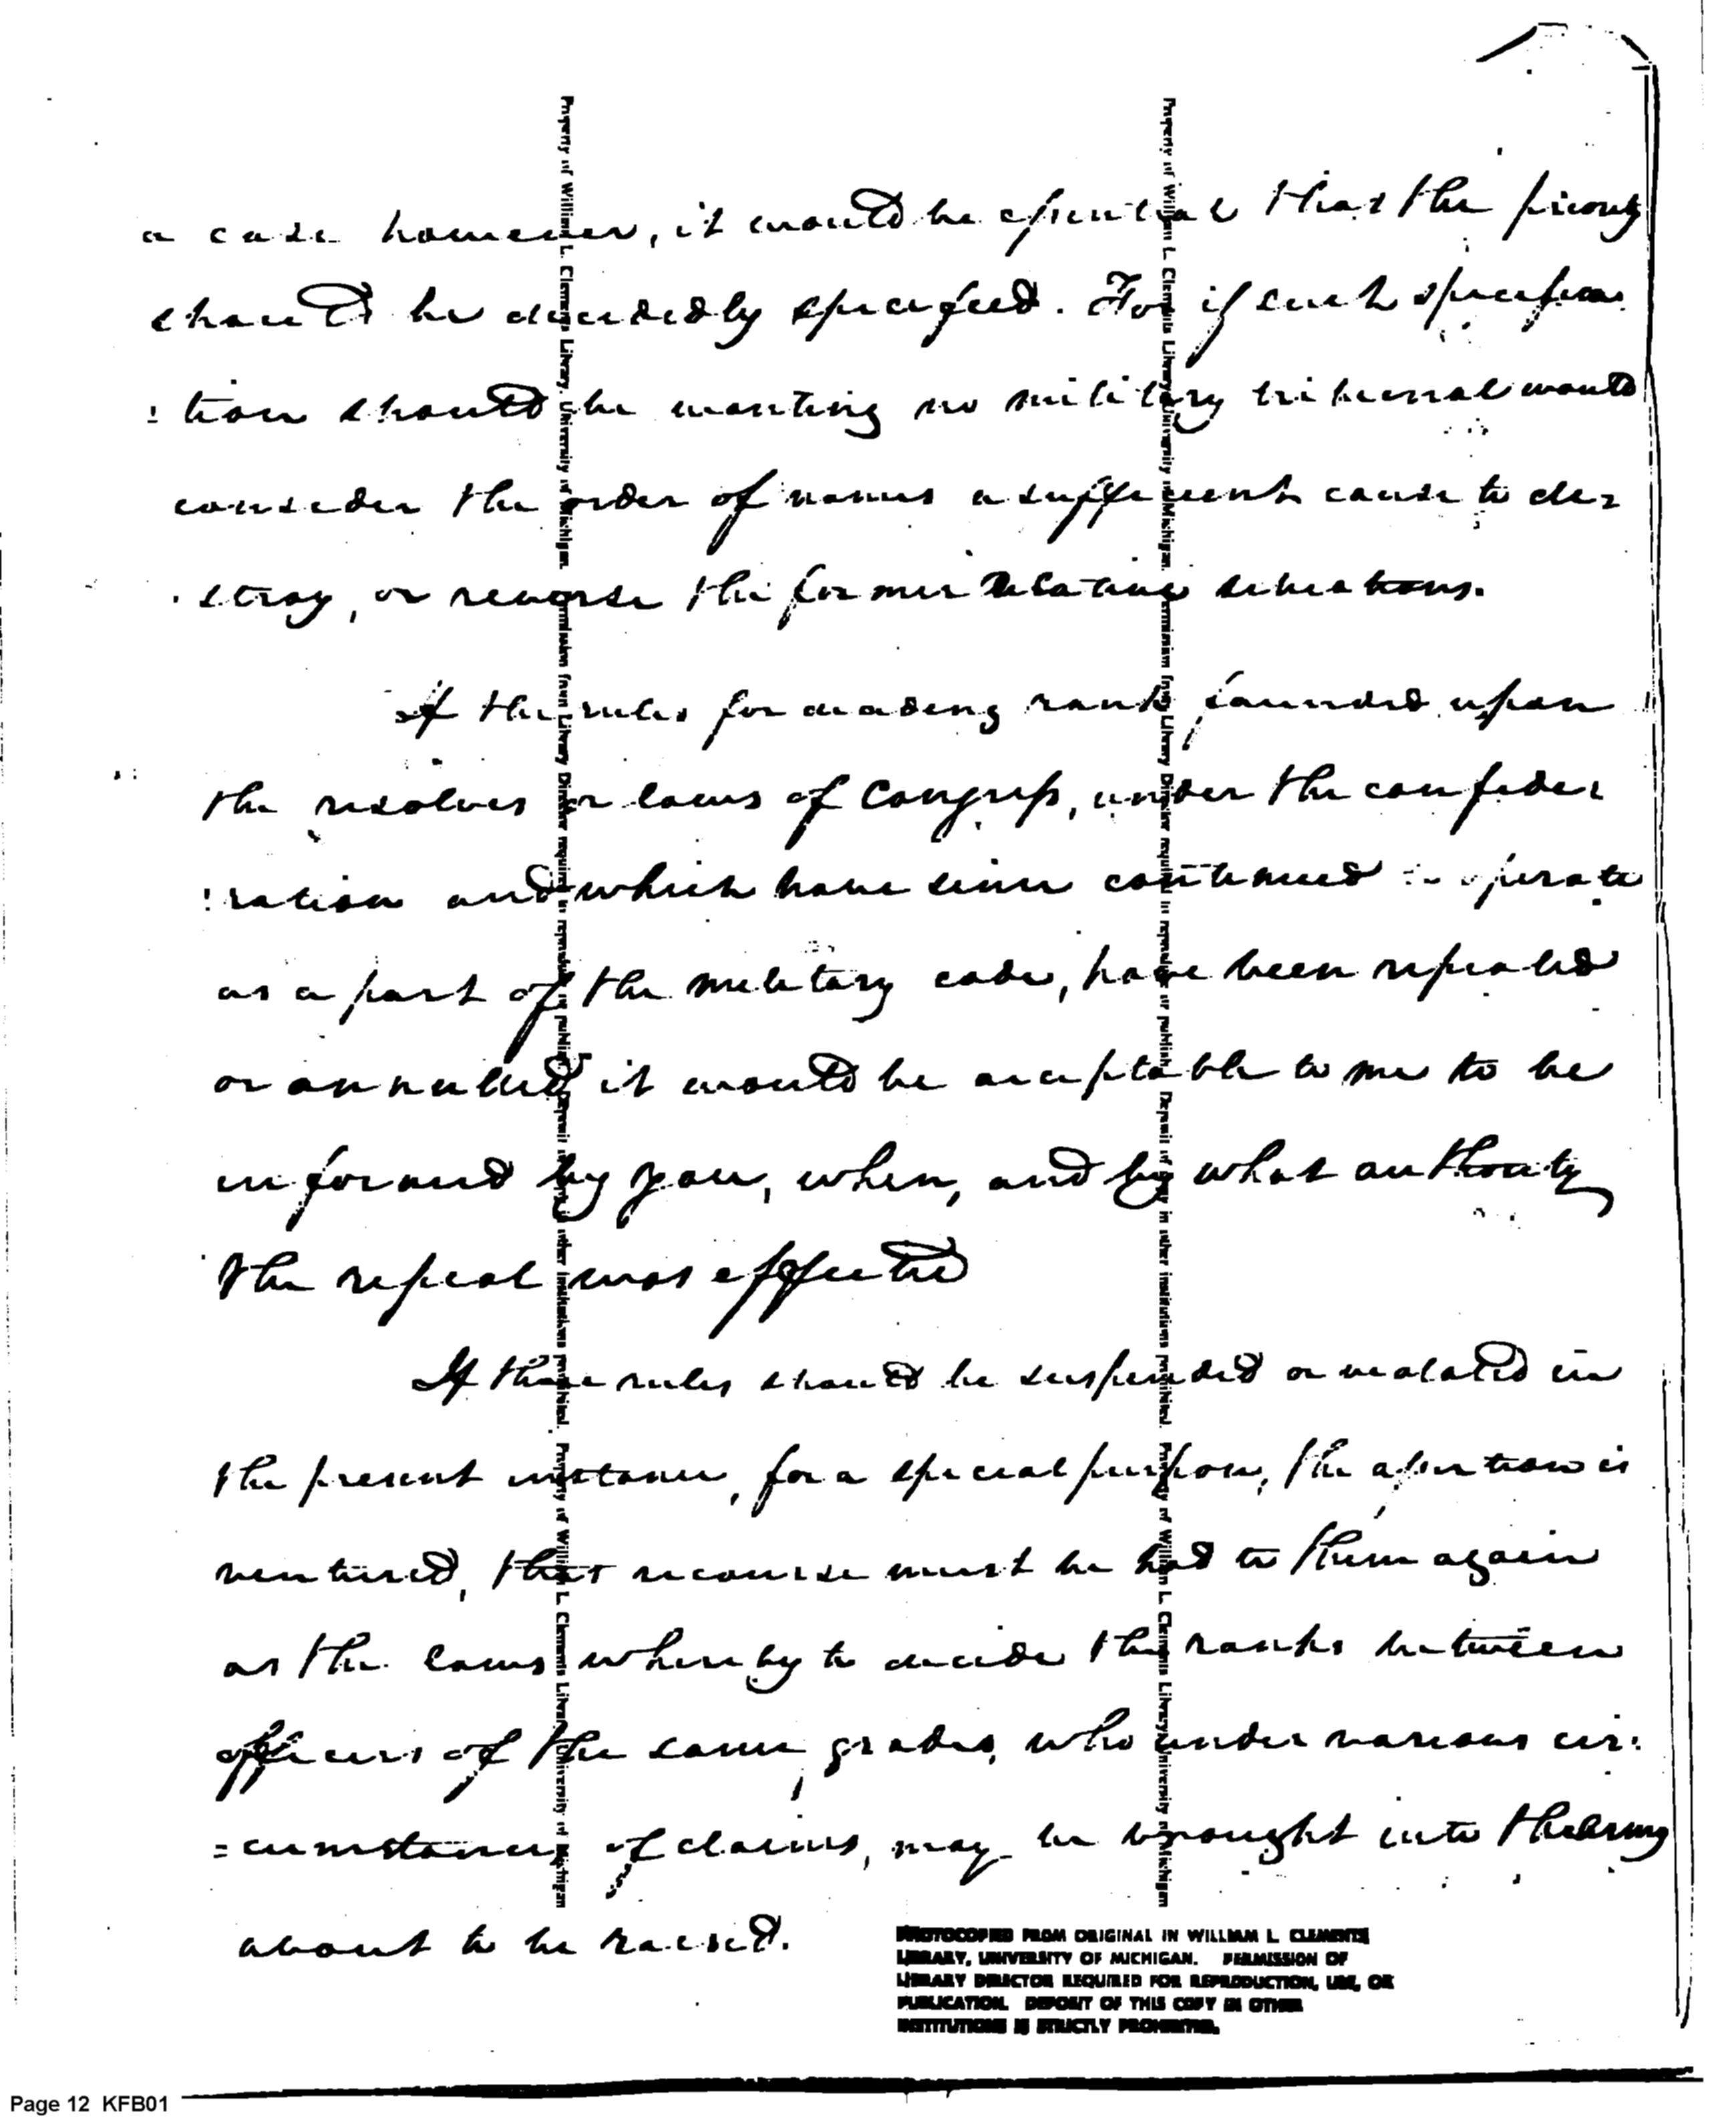 a case however, it would be essential that the priority
should be decidedly specified. For if such specifica
: tion should be wanting no military tribunal would
consider the order of names a sufficient cause to de=
stroy, or reverse the former relative situations.
If the rules for deciding rank founded upon
the resolves or laws of Congress, under the confede:
: ration and which have since continued to operate
as a part of the military code, have been repealed
or annulled it would be acceptable to me to be
informed by you, when, and by what authority
the repeal was effected
If those rules should be suspended or violated in
the present instance, for a special purpose, the assertion is
ventured, that recourse must be had to them again
as the laws whereby to decide the ranks between
officers of the same grades, who under various cir:
= cumstances of claims, may be brought into the army
about to be raised.
PHOTOCOPIED FROM ORIGINAL IN WILLIAM L. CLEMENTS
LIBRARY, UNIVERSITY OF MICHIGAN. PERMISSION OF
LIBRARY DIRECTOR REQUIRED FOR REPRODUCTION, USE, OR
PUBLICATION. DEPOSIT OF THIS COPY IN OTHER
INSTITUTIONS IS STRICTLY PROHIBITED.
Property of William L. Clements Library, University of Michigan. Permission from Library Director required to reproduce or publish. Deposit of copy in other institutions prohibited. Property of William L. Clements Library, University of Michigan
Property of William L. Clements Library, University of Michigan. Permission from Library Director required to reproduce or publish. Deposit of copy in other institutions prohibited. Property of William L. Clements Library, University of Michigan
Page 12 KFB01